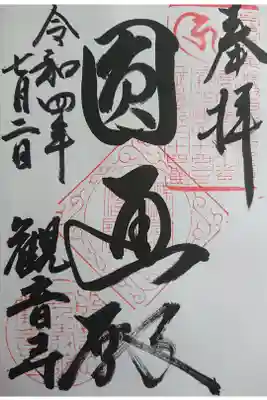 奉拝
圓通殿
令和四年
七月二日
觀音寺